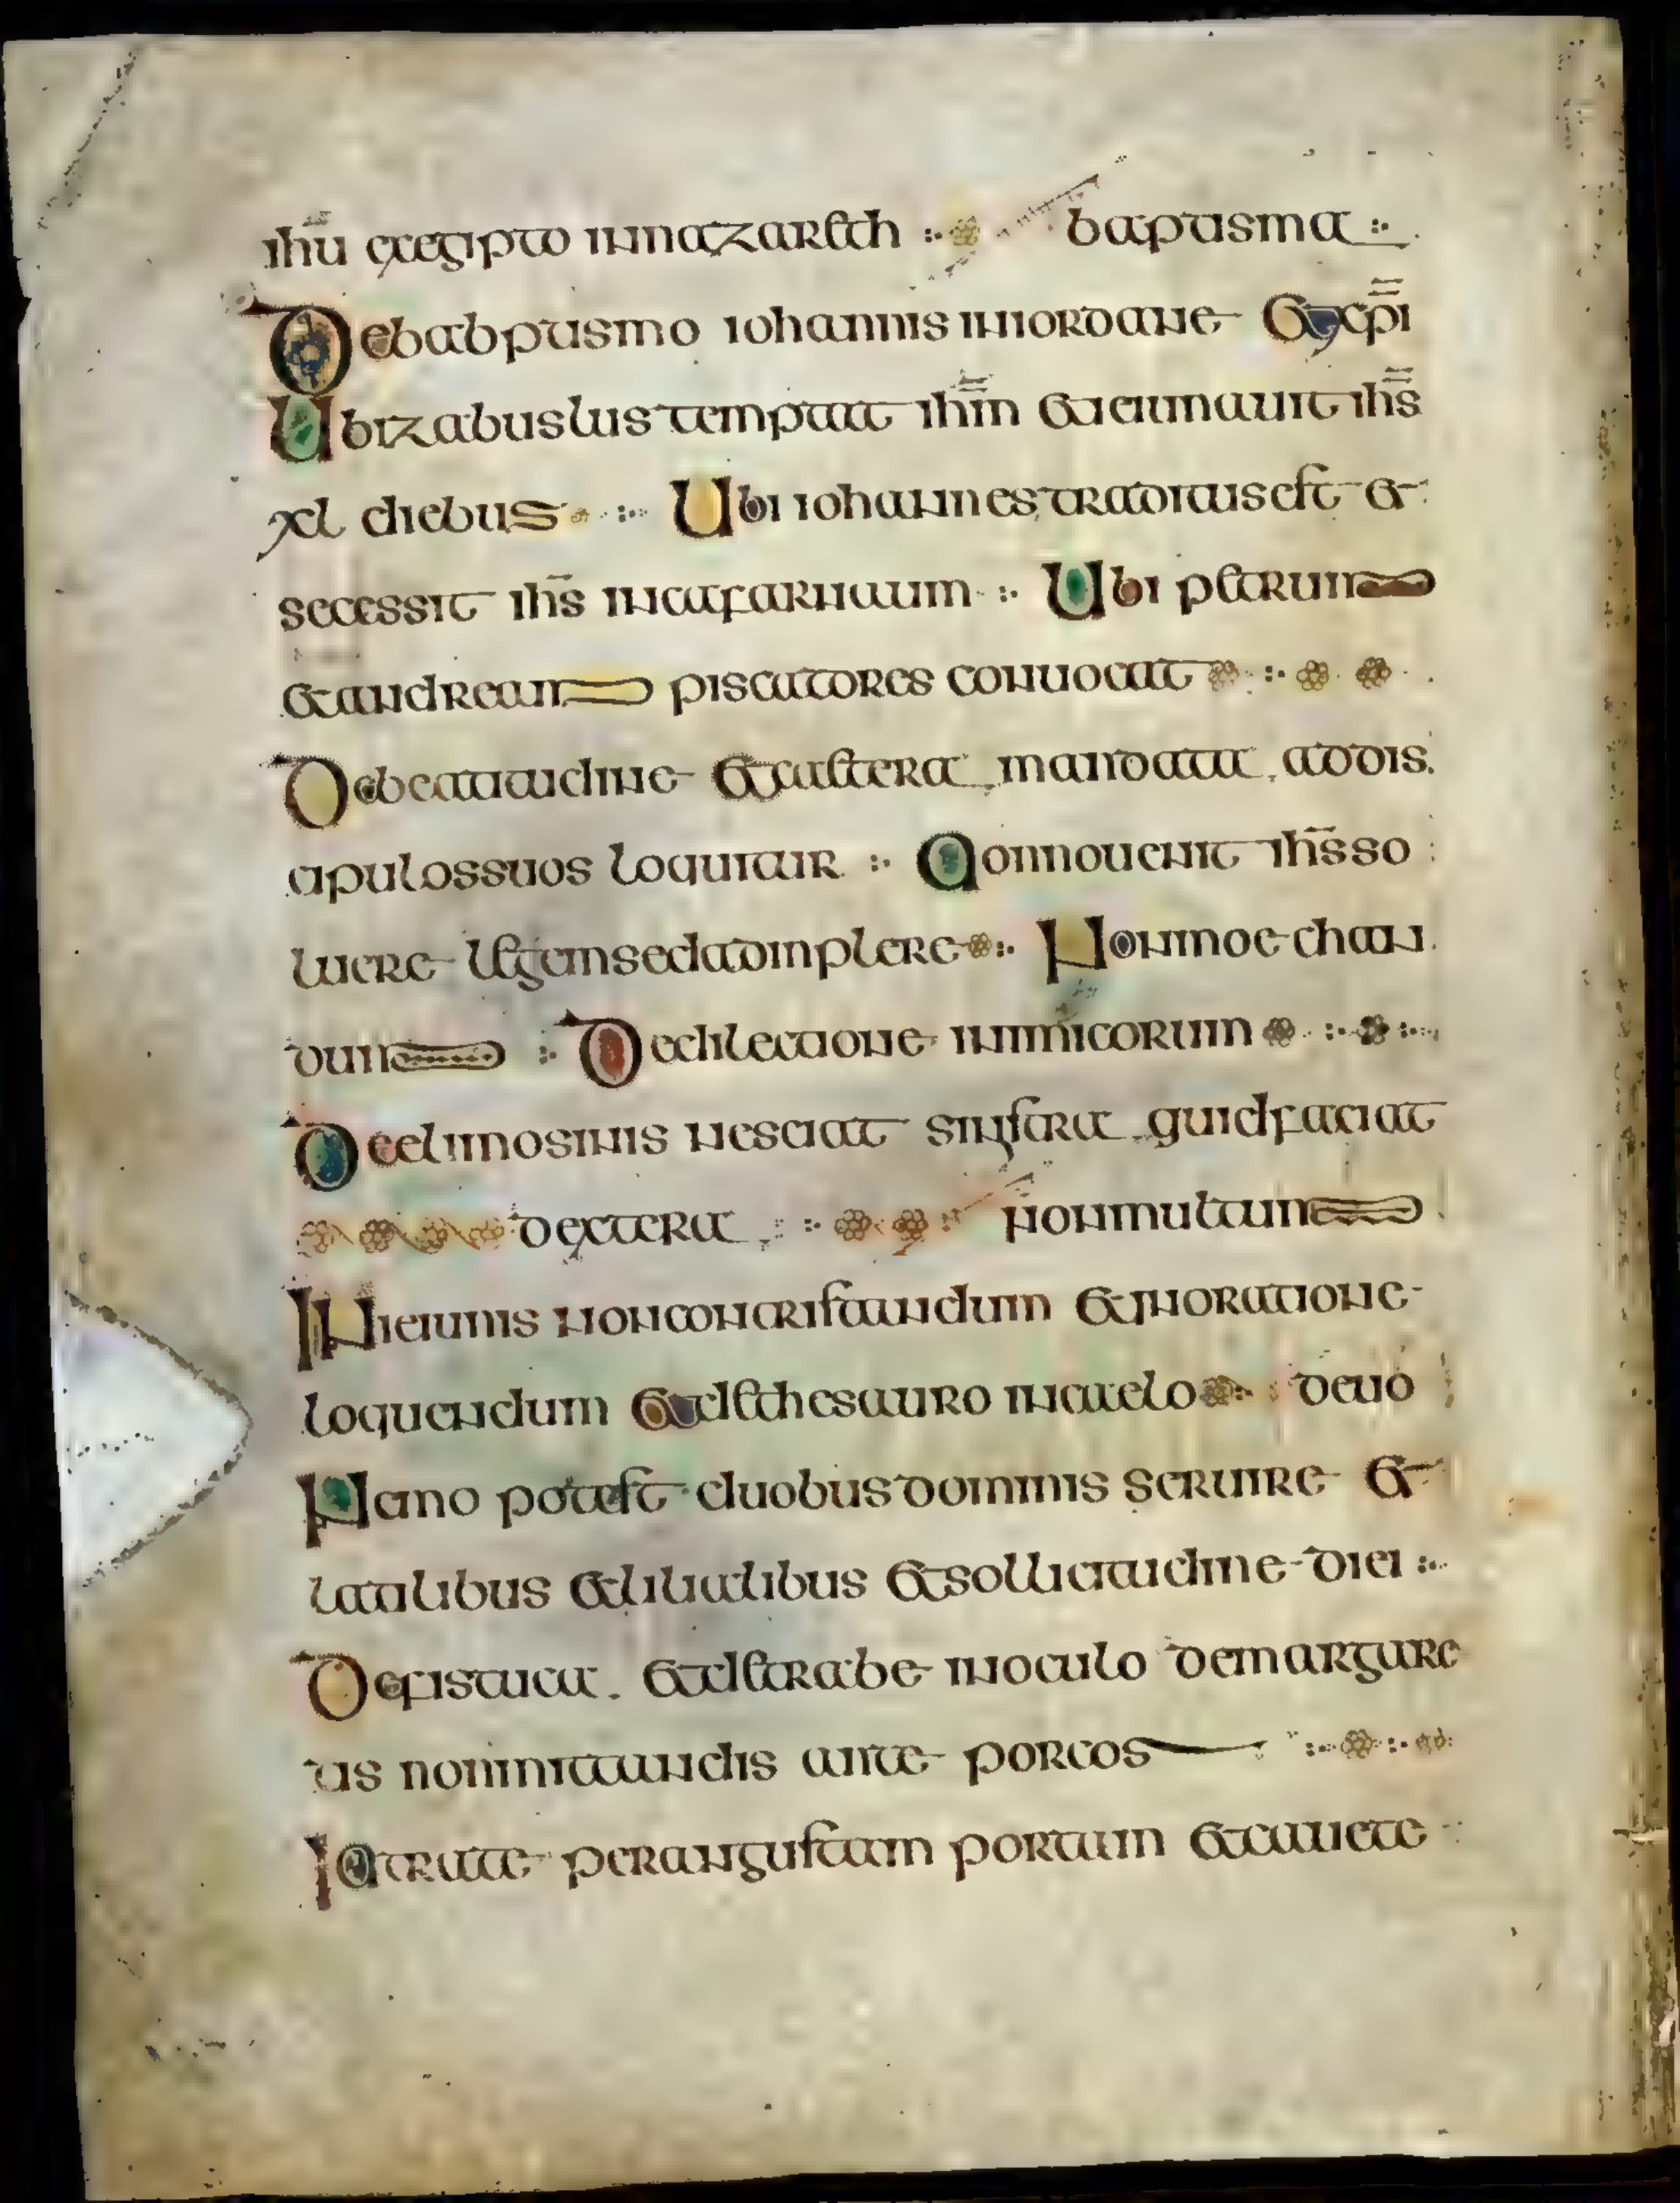 ihū exegipto innazareth baptisma
Debabptismo iohannis iniordane et xp̄i
Ubizabuslus temptat ihm̄ et ieiunauit ihs̄
xl diebus Ubi iohannes traditus est et
secessit ihs̄ incafarnauum Ubi petrum
et andream piscatores conuocat
Debeatitudine et caetera mandata addis
cipulos suos loquitur Qonnouenit ihs̄ so
luere legem sed adimplere Non moechan
dum Dedilectione inimicorum
Deelimosinis nesciat sinistra quid faciat
dextera non multum
In ieiunis non contristandum et in oratione
loquendum et de thesauro in caelo deuo
Nemo potest duobus dominis seruire et
latilibus et liliatibus et sollicitudine diei
De fistuca et de trabe in oculo de margare
tis non mittandis ante porcos
Intrate per angustam portam et cauete